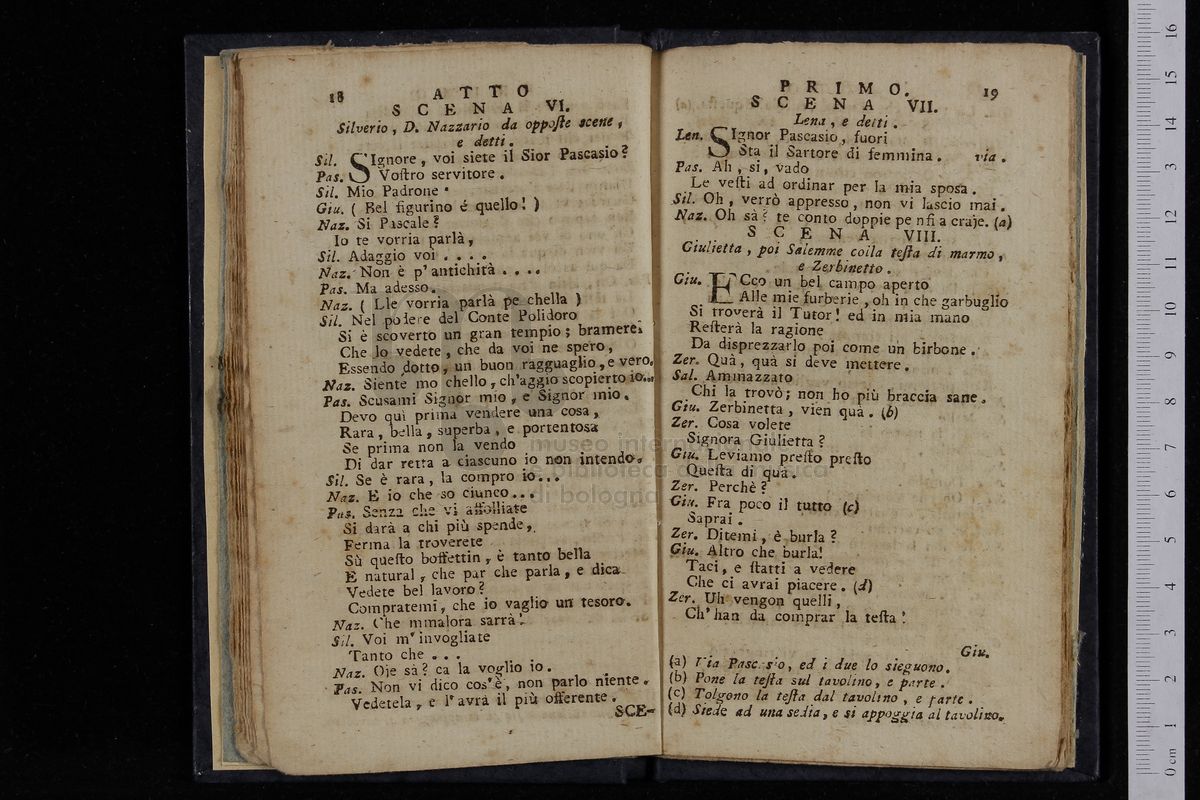 18 ATTO
SCENA VI.
Silverio, D. Nazzario da opposte scene,
e detti.
Sil. SIgnore, voi siete il Sior Pascasio?
Pas. Vostro servitore.
Sil. Mio Padrone.
Giu. ( Bel figurino é quello! )
Naz. Si Pascale?
Io te vorria parlà,
Sil. Adaggio voi . . . .
Naz. Non è p'antichità . . . .
Pas. Ma adesso.
Naz. ( Lle vorria parlà pe chella )
Sil. Nel podere del Conte Polidoro
Si è scoverto un gran tempio; bramerei
Che lo vedete, che da voi ne spero,
Essendo dotto, un buon ragguaglio, e vero.
Naz. Siente mo chello, ch'aggio scopierto io...
Pas. Scusami Signor mio, e Signor mio.
Devo quì prima vendere una cosa,
Rara, bella, superba, e portentosa
Se prima non la vendo
Di dar retta a ciascuno io non intendo.
Sil. Se è rara, la compro io...
Naz. E io che so ciunco...
Pas. Senza che vi affolliate
Si darà a chi più spende,
Ferma la troverete
Sù questo boffettin, è tanto bella
E natural, che par che parla, e dica
Vedete bel lavoro?
Compratemi, che io vaglio un tesoro.
Naz. Che mmalora sarrà!
Sil. Voi m'invogliate
Tanto che . . .
Naz. Oje sà? ca la voglio io.
Pas. Non vi dico cos'è, non parlo niente.
Vedetela, e l'avrà il più offerente.
SCE-
PRIMO. 19
SCENA VII.
Lena, e detti.
Len. SIgnor Pascasio, fuori
Sta il Sartore di femmina. via.
Pas. Ah, si, vado
Le vesti ad ordinar per la mia sposa.
Sil. Oh, verrò appresso, non vi lascio mai.
Naz. Oh sà? te conto doppie pe nfi a craje. (a)
SCENA VIII.
Giulietta, poi Salemme colla testa di marmo,
e Zerbinetto.
Giu. ECco un bel campo aperto
Alle mie furberie, oh in che garbuglio
Si troverà il Tutor! ed in mia mano
Resterà la ragione
Da disprezzarlo poi come un birbone.
Zer. Quà, quà si deve mettere.
Sal. Ammazzato
Chi la trovò; non ho più braccia sane.
Giu. Zerbinetta, vien quà. (b)
Zer. Cosa volete
Signora Giulietta?
Giu. Leviamo presto presto
Questa di quà.
Zer. Perchè?
Giu. Fra poco il tutto (c)
Saprai.
Zer. Ditemi, è burla?
Giu. Altro che burla!
Taci, e statti a vedere
Che ci avrai piacere. (d)
Zer. Uh vengon quelli,
Ch'han da comprar la testa!
Giu.
(a) Via Pascasio, ed i due lo sieguono.
(b) Pone la testa sul tavolino, e parte.
(c) Tolgono la testa dal tavolino, e parte.
(d) Siede ad una sedia, e si appoggia al tavolino.
museo internazionale
e biblioteca della musica
di bologna
0 cm 1 2 3 4 5 6 7 8 9 10 11 12 13 14 15 16